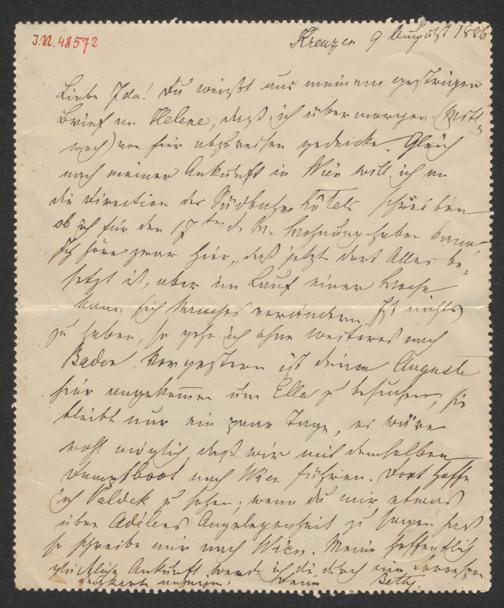 I.N. 48572
Kreuzen 9 August 1886
Liebe Ida! Du weißt aus meinem gestrigen
Brief an Helene, daß ich übermorgen (Mitt-
woch) von hier abzureisen gedenke. Gleich
nach meiner Ankunft in Wien will ich an
die Direction des Südbahn Hôtels schreiben
ob ich für den 17ten d. M. Wohnung haben kann
Ich höre zwar hier, daß jetzt dort Alles be-
setzt ist, aber im Lauf einer Woche
kann sich Manches verändern. Ist nichts
zu haben, so gehe ich ohne weiteres nach
Baden. Vorgestern ist deine Auguste
hier angekommen um Ella zu besuchen, sie
bleibt nur ein paar Tage, es wäre
wohl möglich daß wir mit demselben
Dampfboot nach Wien führen. Dort hoffe
ich Valdek zu sehen; wenn du mir etwas
über Adelens Angelegenheit zu sagen hast
so schreibe mir nach Wien. Meine hoffentlich
glückliche Ankunft werde ich dir durch eine
Deine Betty.